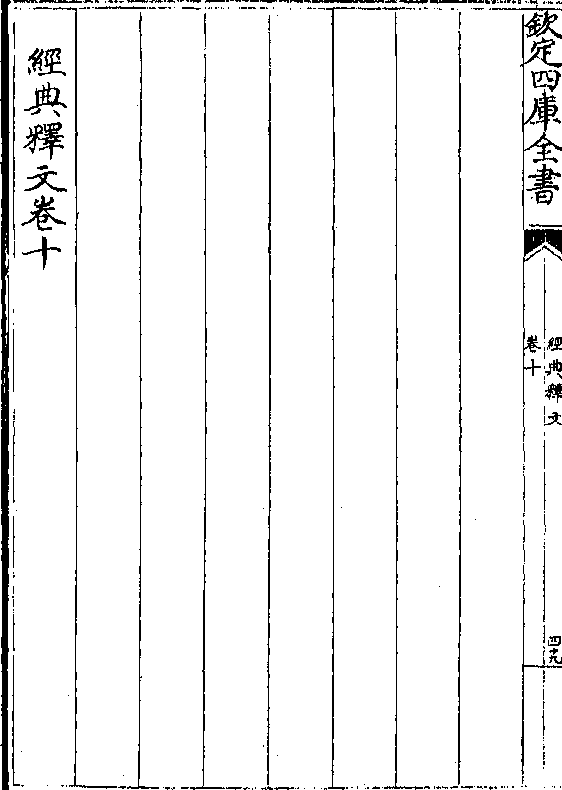 欽定四庫全書
經典釋文
卷十
四十九
經典釋文卷十